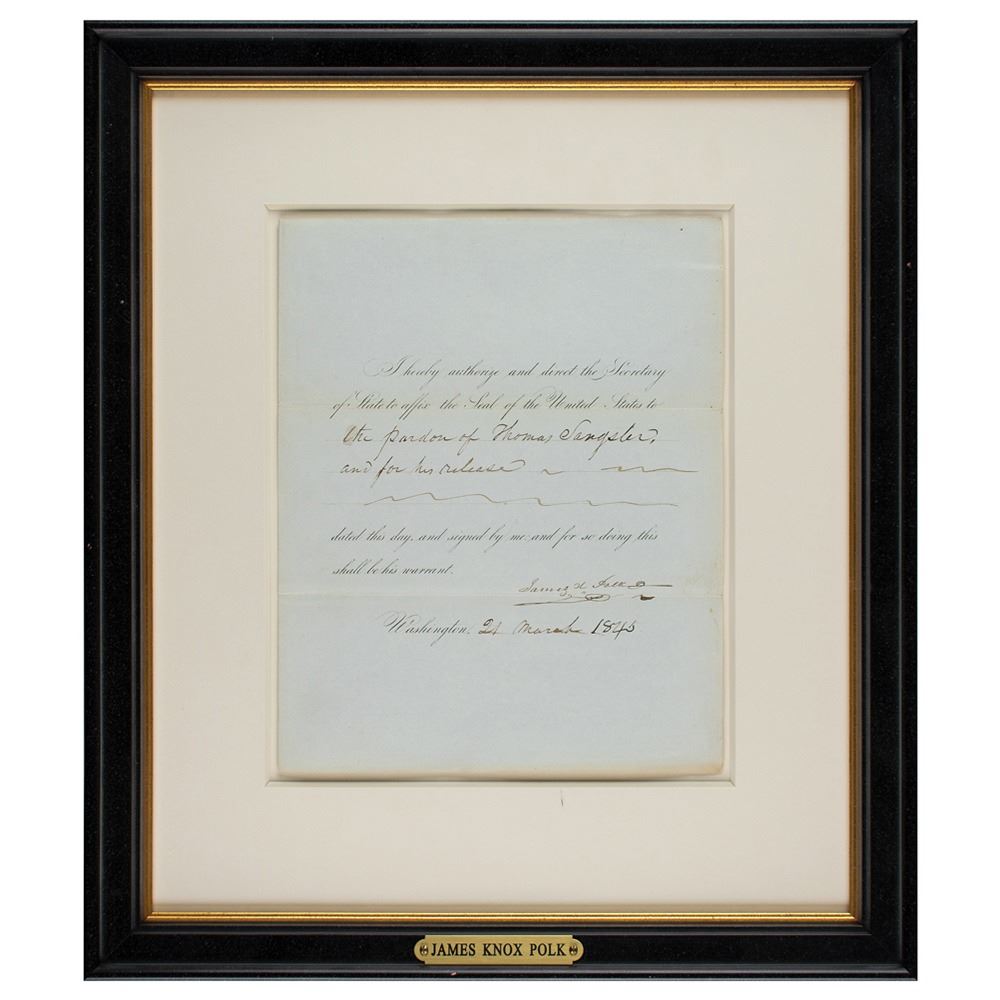 I hereby authorize and direct the Secretary
of State to affix the Seal of the United States to
the pardon of Thomas Sangster,
and for his release
dated this day, and signed by me and for so doing this
shall be his warrant.
James K Polk
Washington, 21 March 1845
JAMES KNOX POLK